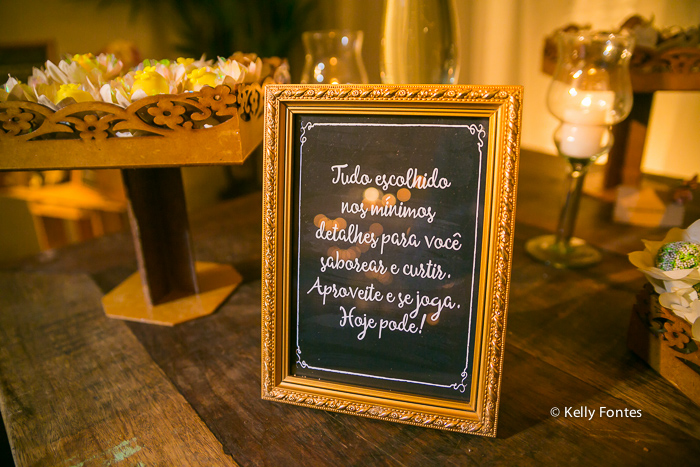 Tudo escolhido
nos mínimos
detalhes para você
saborear e curtir.
Aproveite e se joga.
Hoje pode!
© Kelly Fontes